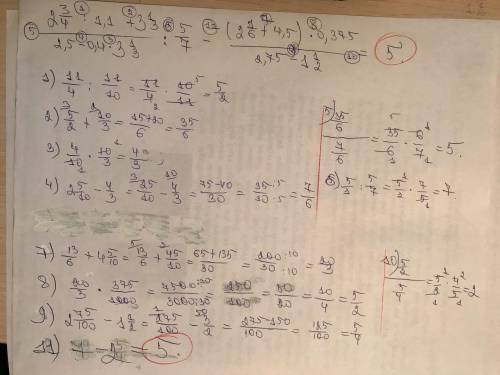 (2 3/4 : 1,1 + 3 1/3) / (2,5 - 0,4 · 3 1/3) : 5/7 - ((2 1/6 + 4,5) · 0,375) / (2,75 - 1 1/2) = 5.
1) 11/4 : 11/10 = 11/4 · 10/11 = 5/2
2) 5/2 + 10/3 = 15+20/6 = 35/6
3) 4/10 · 10/3 = 4/3,
4) 25/10 - 4/3 = 25/10 - 4/3 = 75-40/30 = 35:5/30:5 = 7/6
5) 35/6 / 7/6 = 35/6 · 6/7 = 5.
6) 5/1 : 5/7 = 5/1 · 7/5 = 7
7) 13/6 + 4 5/10 = 13/6 + 45/10 = 65+135/30 = 200:10/30:10 = 20/3
8) 20/3 · 375/1000 = 7500:30/3000:30 = 250/100 = 50/20 = 10/4 = 5/2
9) 2 75/100 - 1 1/2 = 275/100 - 3/2 = 275-150/100 = 125/100 = 5/4
10) 5/2 / 5/4 = 5/2 · 4/5 = 2
11) 7 - 2 = 5.